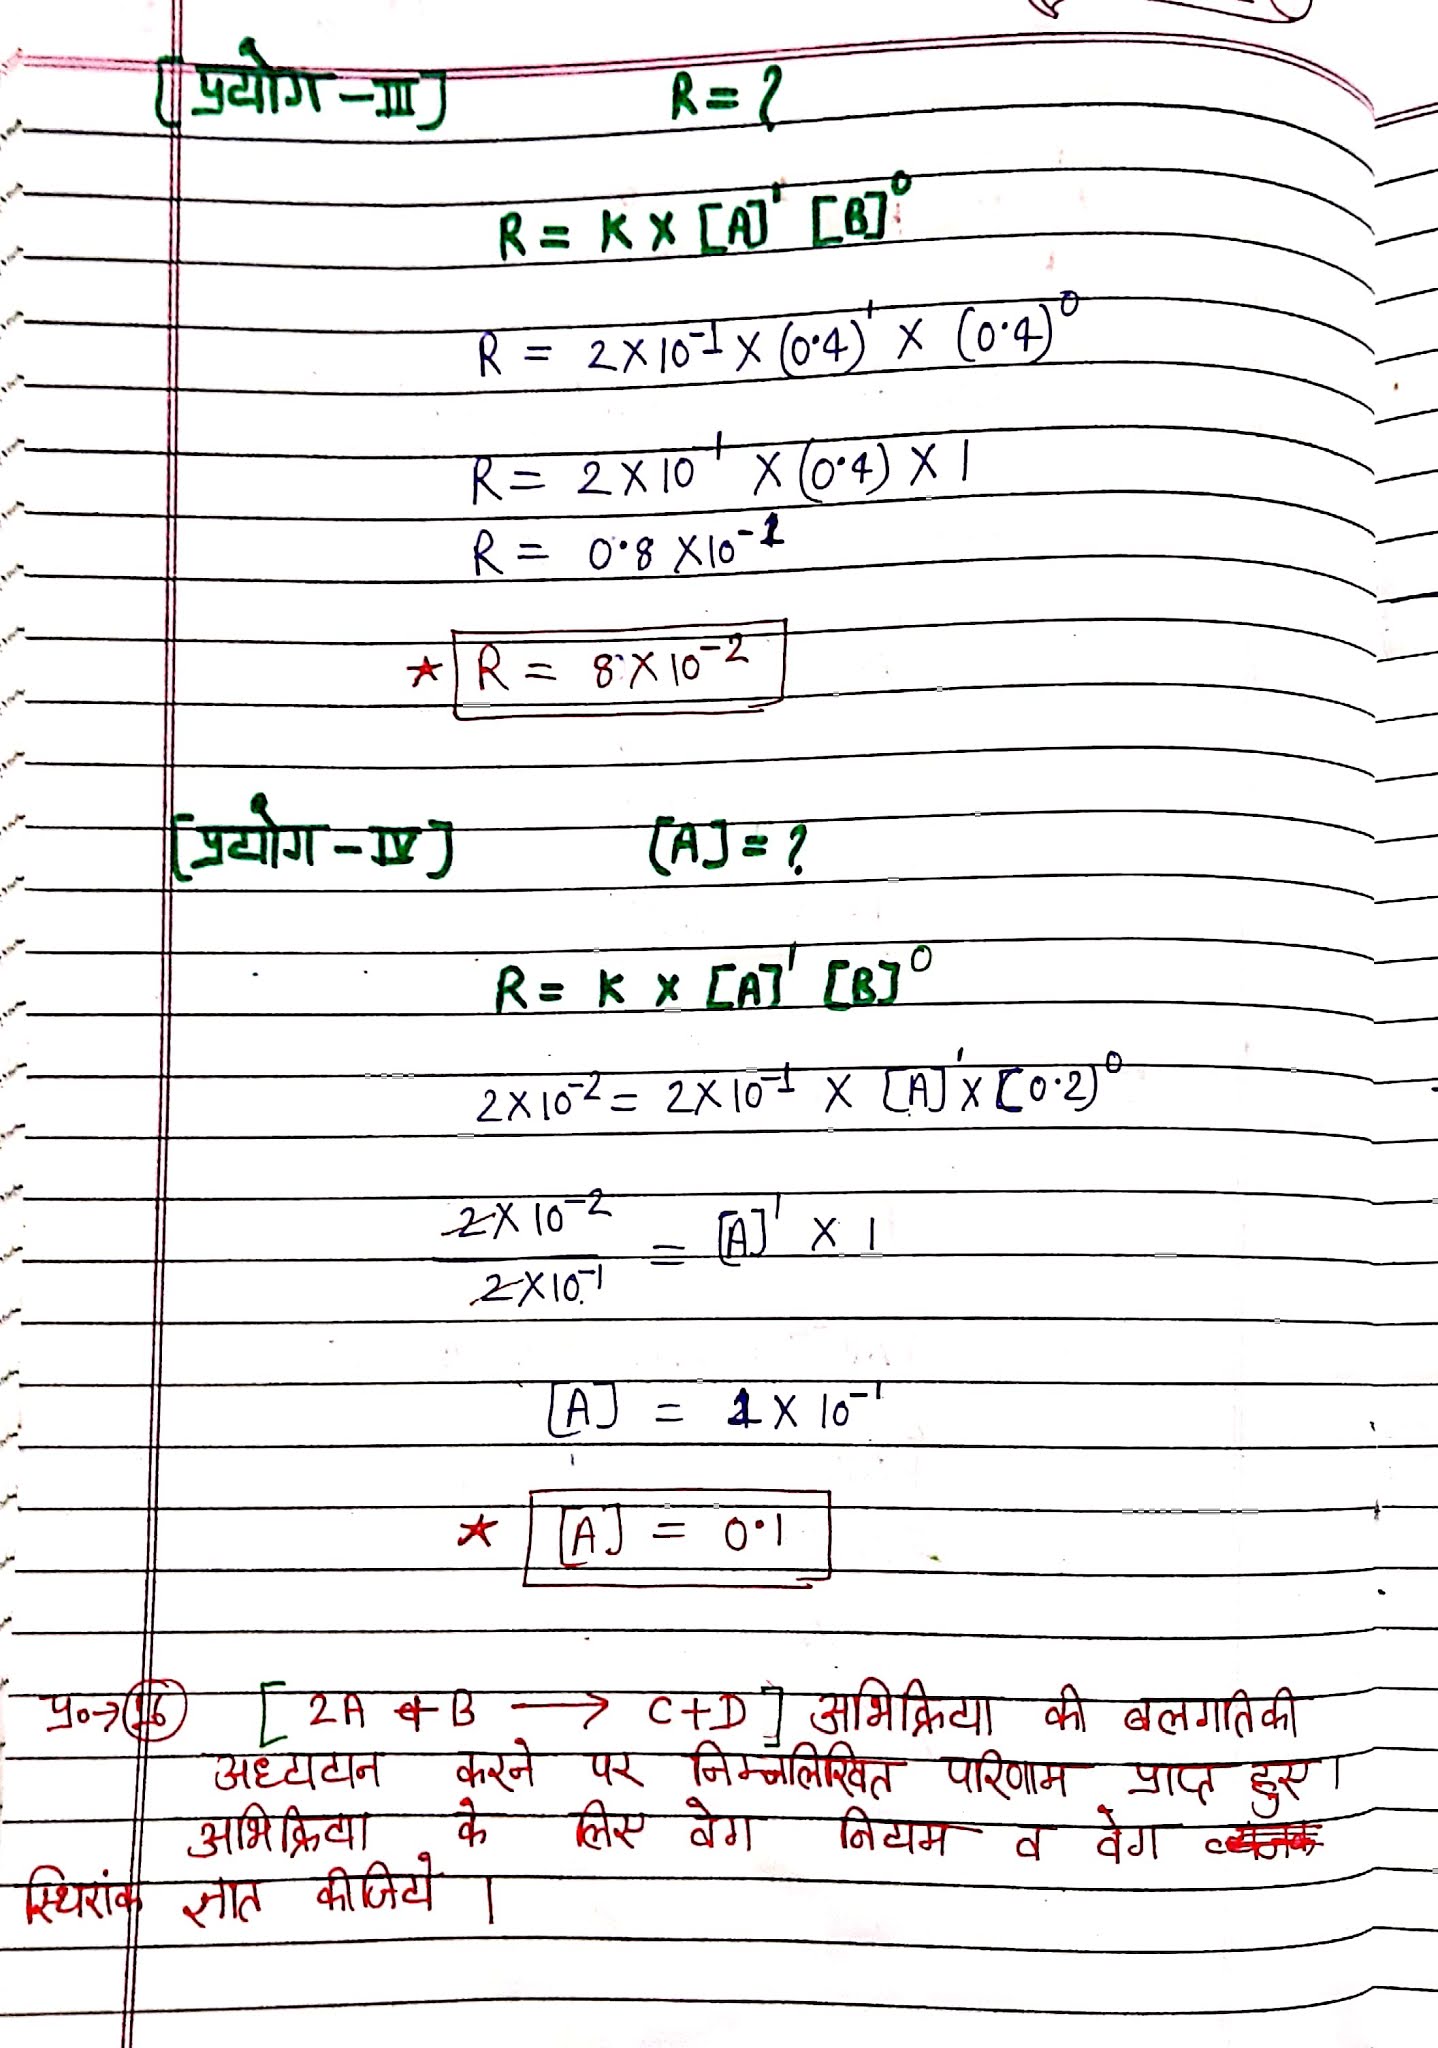 [प्रयोग-III] R = ?
R = K × [A]¹ [B]⁰
R = 2×10⁻¹ × (0.4)¹ × (0.4)⁰
R = 2×10⁻¹ × (0.4) × 1
R = 0.8×10⁻¹
★ R = 8×10⁻²
[प्रयोग-IV] [A] = ?
R = K × [A]¹ [B]⁰
2×10⁻² = 2×10⁻¹ × [A]¹ × [0.2)⁰
2×10⁻²
= [A]¹ × 1
2×10⁻¹
[A] = 1×10⁻¹
★ [A] = 0.1
प्र०→ 16 [2A + B → C+D] अभिक्रिया की बलगतिकी
अध्ययन करने पर निम्नलिखित परिणाम प्राप्त हुए।
अभिक्रिया के लिए वेग नियम व वेग
स्थिरांक ज्ञात कीजिये।